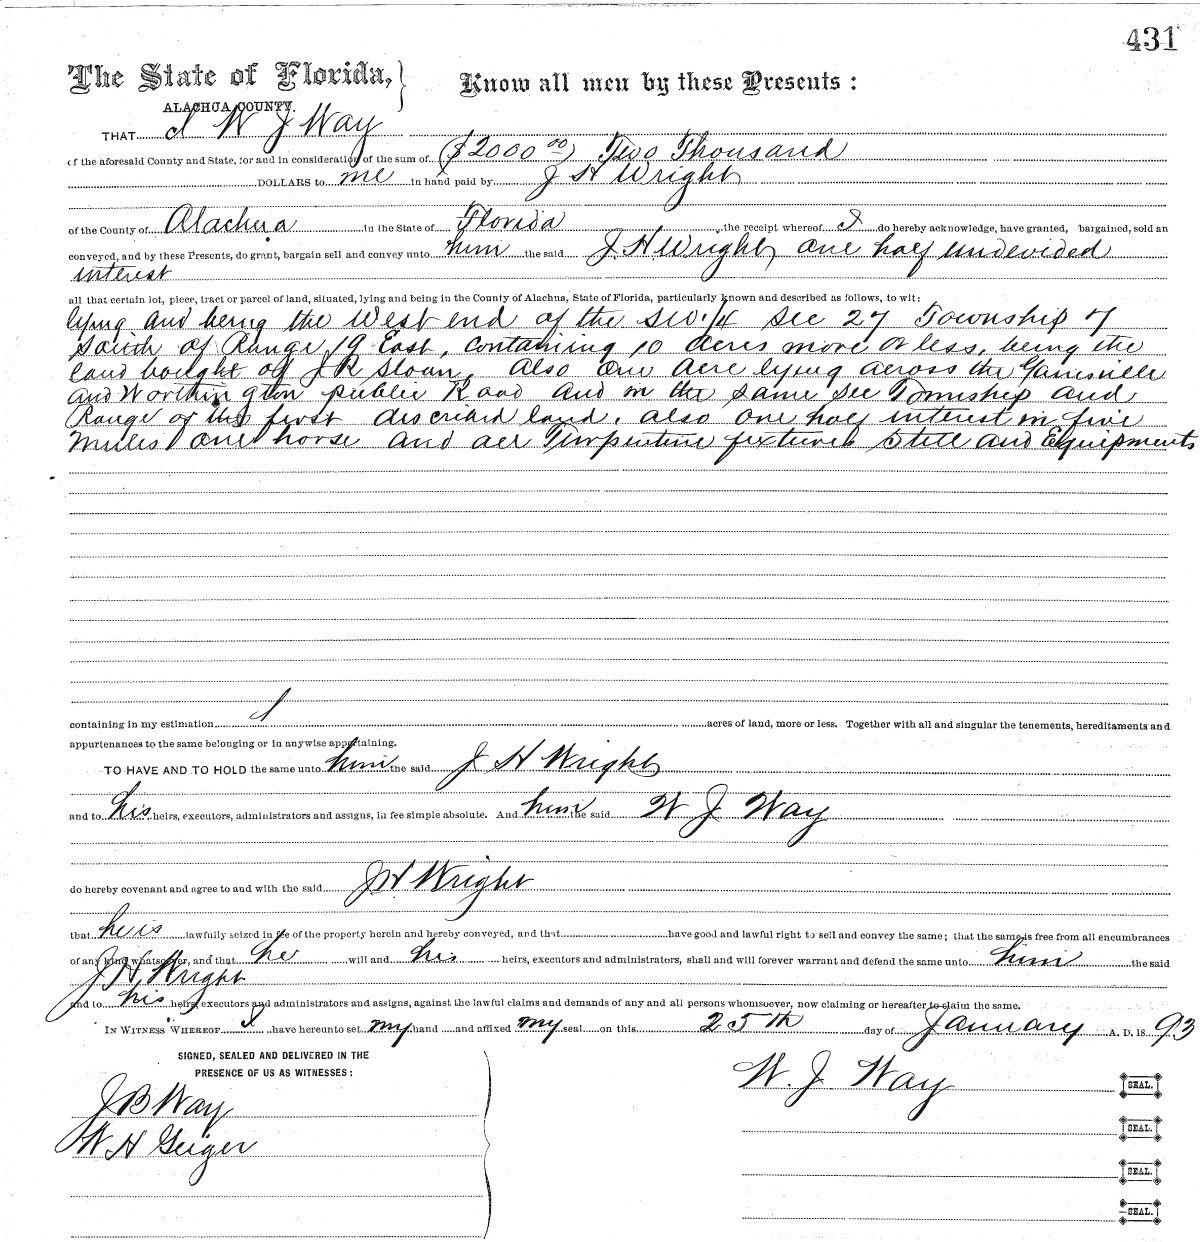 431
The State of Florida,} Know all men by these Presents :
ALACHUA COUNTY.
THAT I W J Way
of the aforesaid County and State, for and in consideration of the sum of ($2000 00) Two Thousand
DOLLARS to me in hand paid by J H Wright
of the County of Alachua in the State of Florida the receipt whereof I do hereby acknowledge, have granted, bargained, sold an
conveyed, and by these Presents, do grant, bargain sell and convey unto him the said J H Wright, one half undevided
interest
all that certain lot, piece, tract or parcel of land, situated, lying and being in the County of Alachua, State of Florida, particularly known and described as follows, to wit:
lying and being the West end of the SW 1/4 Sec 27 Township 7
South of Range 19 East, Containing 10 acres more or less, being the
land bought of J R Sloan. Also One Acre lying across the Gainsville
and Worthington public Road and in the same Sec Township and
Range of the first discriard land. also one half interest in five
mules one horse and all Turpentine fixtures Still and Equipments
containing in my estimation acres of land, more or less. Together with all and singular the tenements, hereditaments and
appurtenances to the same belonging or in anywise appertaining.
TO HAVE AND TO HOLD the same unto him the said J H Wright
and to his heirs, executors, administrators and assigns, in fee simple absolute. And him the said W J Way
do hereby covenant and agree to and with the said J H Wright
that he is lawfully seized in fee of the property herein and hereby conveyed, and that have good and lawful right to sell and convey the same; that the same is free from all encumbrances
of any kind whatsoever, and that he will and his heirs, executors and administrators, shall and will forever warrant and defend the same unto him the said
J H Wright
and to his heirs, executors and administrators and assigns, against the lawful claims and demands of any and all persons whomsoever, now claiming or hereafter to claim the same.
IN WITNESS WHEREOF I have hereunto set my hand and affixed my seal on this 25th day of January A. D. 18 93
SIGNED, SEALED AND DELIVERED IN THE
PRESENCE OF US AS WITNESSES :
W. J. Way SEAL.
J B Way
SEAL.
W H Geiger
SEAL.
SEAL.